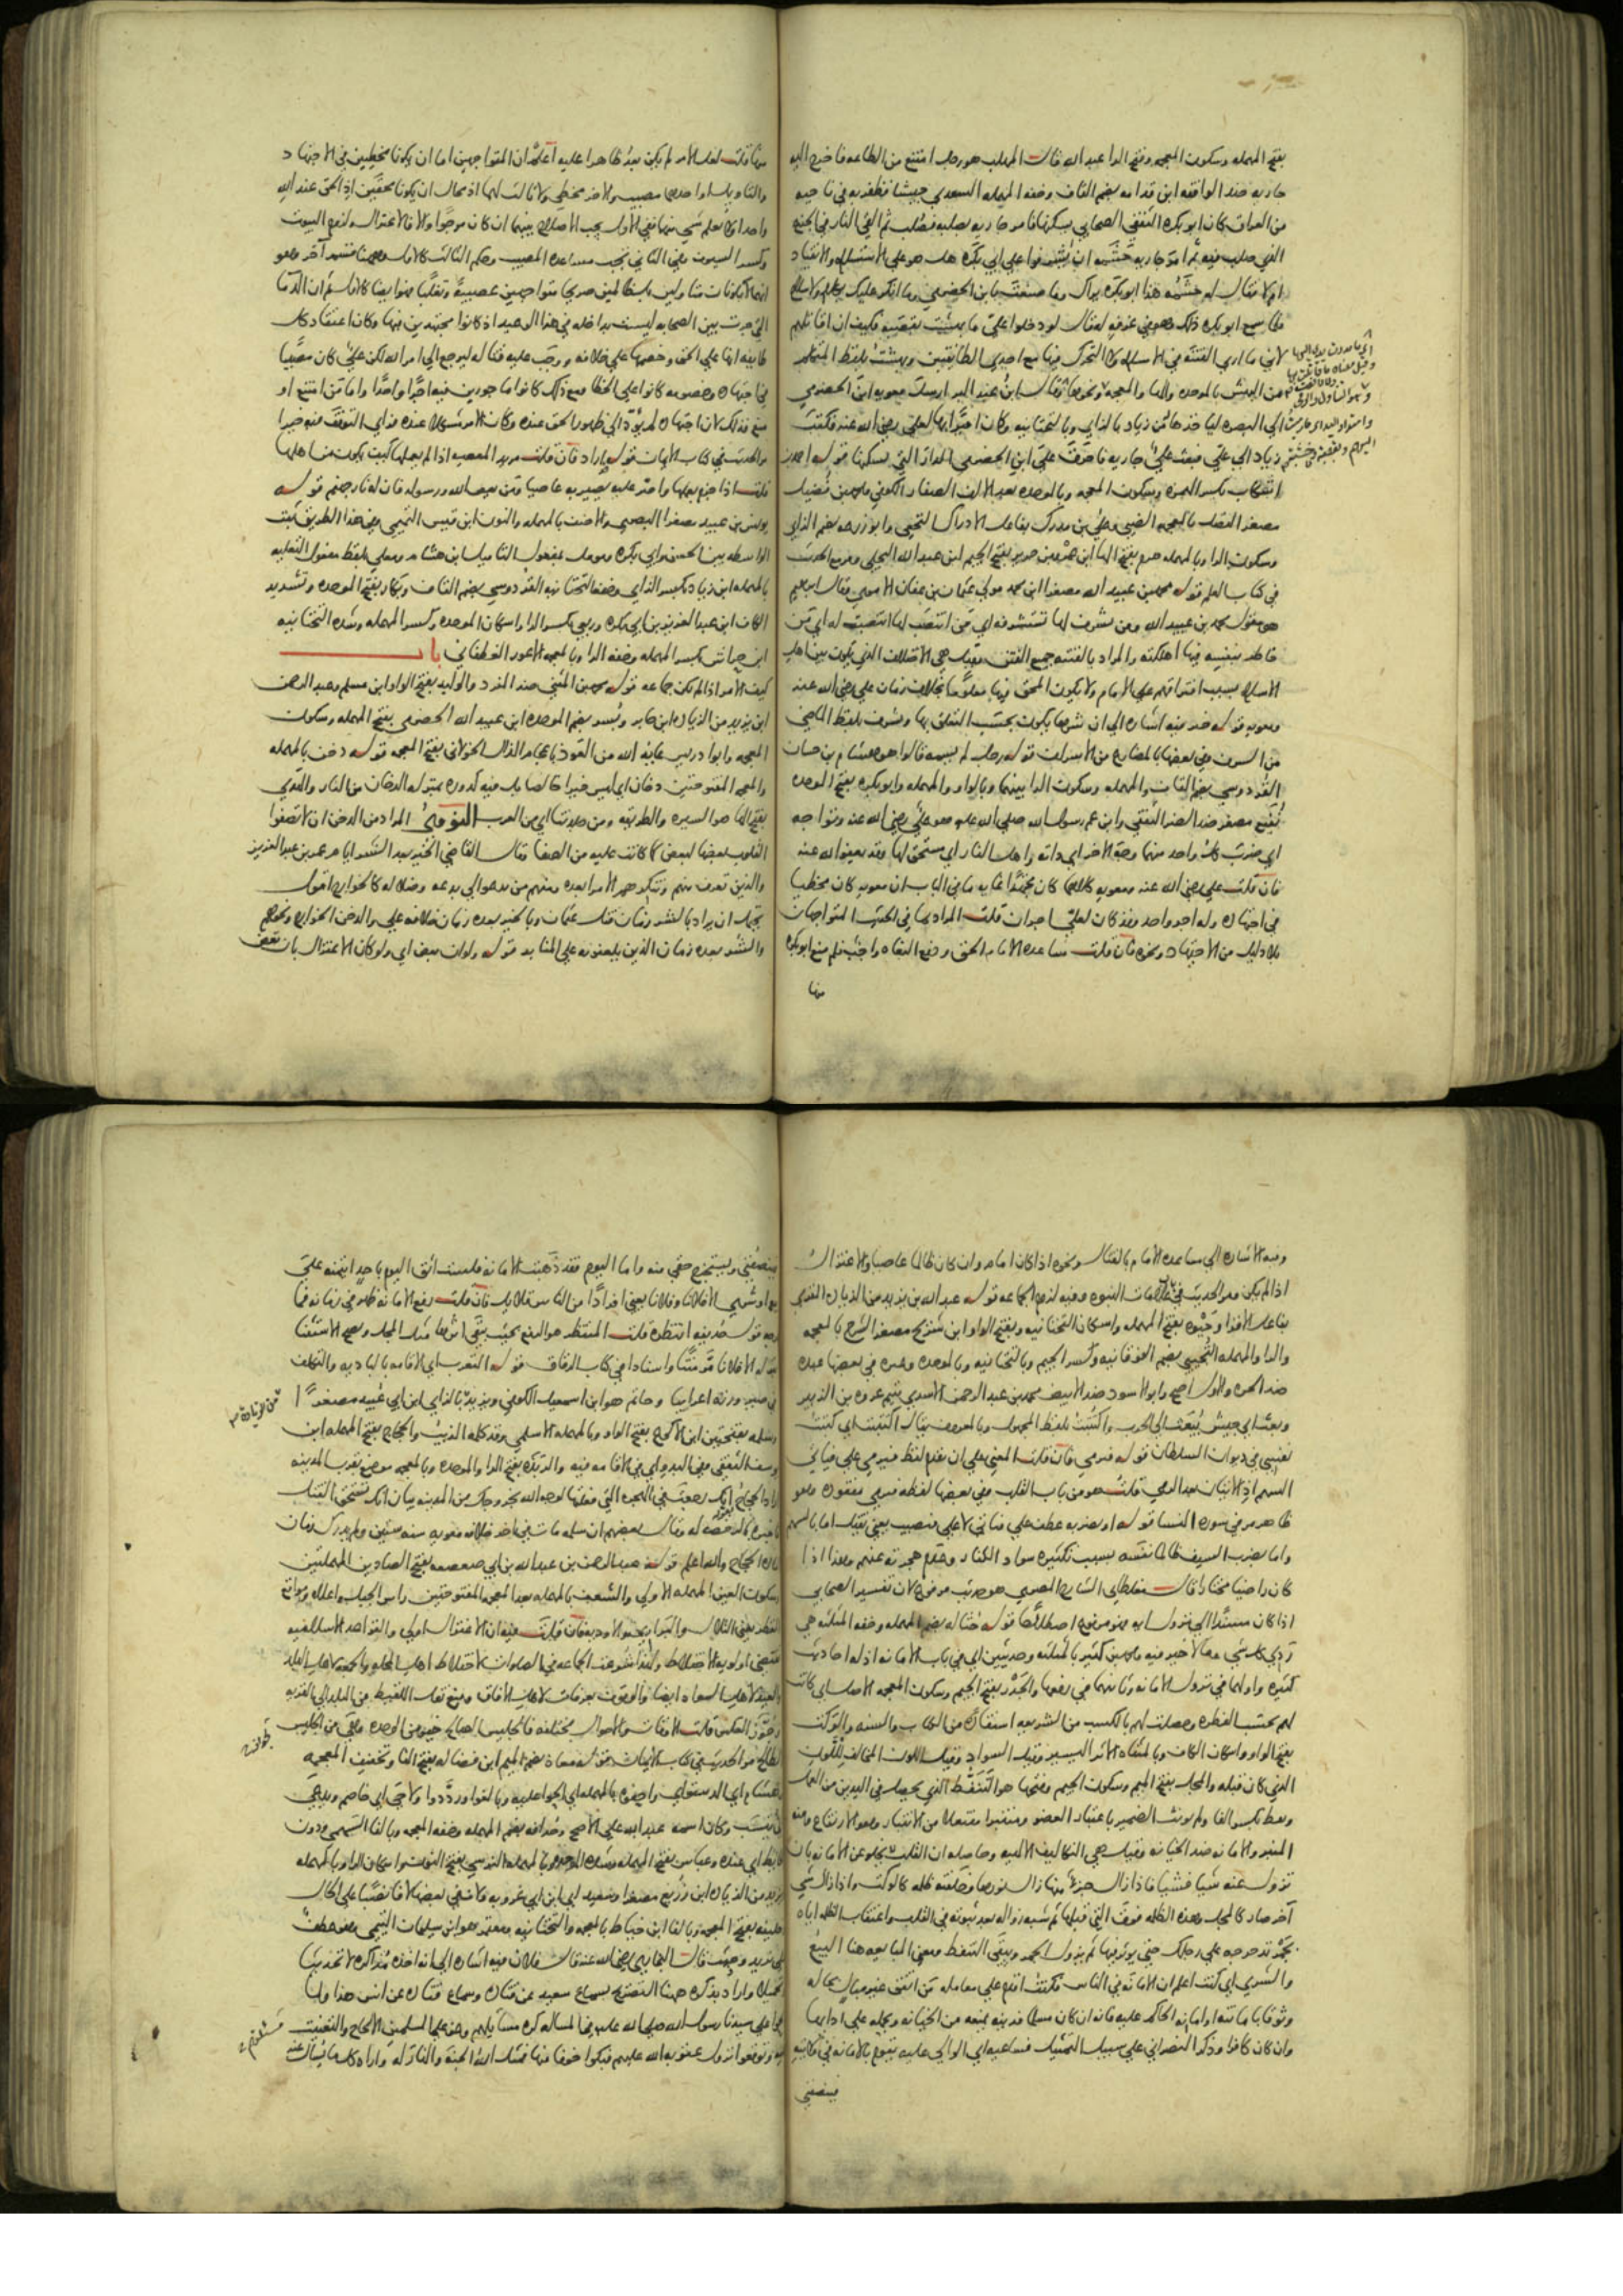 بفتح المهمله وسكون المعجمه وفتح الرا عبد الله قال المهلب هو رجل امتنع من الطاعه فاخرج اليه
جاريه ضد الواقفه ابن قدامه بضم القاف وخفه المهمله السعدي جيشا فظفر به في ناحيه
من العراق كان ابو بكره الثقفي الصحابي يسكنها فامر جاريه بصلبه فصلب ثم القي النار في الجذع
الذي صلب فيه ثم امر جاريه حشمه ان يشرفوا علي ابي بكره هل هو علي الاستسلام والانقياد
ام لا فقال له حشمه هذا ابو بكره يراك وما صنعت بابن الحضرمي وما انكر عليك بكلام ولا سلاح
فلما سمع ابو بكره ذلك وهو في غرفه له قال لو دخلوا علي ما بهشت بقصبه فكيف ان اقاتلهم
لاني ما اري الفتنه في الاسلام ولا التحرك فيها مع احدي الطائفتين وبهشت بلفظ المتكلم
من البهش بالموحده والها والمعجمه وقال ابن عبد البر ارسل معويه ابن الحضرمي
الي البصره لياخذها من زياد بالزاي وبالتحتانيه وكان اميرا بها لعلي رضي الله عنه فكتب
زياد الي علي فبعث علي جاريه فاحرق علي ابن الحضرمي الدار التي يسكنها قوله احمد بن
اشكاب بكسر الهمزه وسكون المعجمه وبالموحده بعد الالف الصفار الكوفي ومحمد بن فضيل
مصغر الفضل بالمعجمه الضبي وعلي بن مدرك بفاعل الادراك النخعي وابو زرعه بضم الزاي
وسكون الرا وبالمهمله هرم بفتح الها ابن عمرو بن جرير بفتح الجيم ابن عبد الله البجلي ومر مع الحديث
في كتاب العلم قوله محمد بن عبيد الله مصغرا ابن محمد مولي عثمان بن عفان الاموي وقال ابرهيم
هو مقول محمد بن عبيد الله ومن تشرف لها تستشرفه اي من انتصب لها انتصبت له اي من
خاطر بنفسه فيها اهلكته والمراد بالفتنه جميع الفتن وقيل هي الاختلاف الذي يكون بين اهل
الاسلام بسبب افتراقهم علي الامام ولا يكون المحق فيها معلوما بخلاف زمان علي رضي الله عنه
ومعويه قوله خير فيه اشاره الي ان شرها يكون بحسب التعلق بها وتشرف بلفظ الماضي
من التشرف وفي بعضها بالمضارع من الاشراف قوله رجل لم يسمه قالوا هو هشام بن حسان
القردوسي بضم القاف والمهمله وسكون الرا بينهما وبالواو والمهمله وابو بكره بفتح الموحده
نفيع مصغر ضد الضر الثقفي وابن عم رسول الله صلي الله عليه هو علي رضي الله عنه وتواجه
اي ضرب كل واحد منهما وجه الاخر اي ذاته واهل النار اي مستحق لها وقد يعفو الله عنه
فان قلت علي رضي الله عنه ومعويه كلاهما كان مجتهدا غايه ما في الباب ان معويه كان مخطيا
في اجتهاده وله اجر واحد وقد كان لعلي اجران قلت المراد بما في الحديث المتواجهان
بلا دليل من الاجتهاد ونحوه فان قلت مساعده الامام الحق ودفع البغاه واجب فلم منع ابو بكره
منها
منها قلت لعل الامر لم يكن بعد ظاهرا عليه اعلم ان المتواجهين اما ان يكونا مخطيين في الاجتهاد
والتاويل او احدهما مصيب والاخر مخطي ولا ثالث لهما اذ محال ان يكونا محقين اذ الحق عند الله
واحد او لا يعلم شي منهما ففي الاول يجب الاصلاح بينهما ان كان مرجوا والا فالاعتزال ولزوم البيوت
وكسر السيوف وفي الثاني تجب مساعده المصيب وحكم الثالث كالاول وههنا قسم آخر وهو
انهما لا يكونان متاولين بل ظالمين صريحا متواجهين عصبية وتغلبا فهو ايضا كالاول ثم ان الدما
التي جرت بين الصحابه ليست بداخله في هذا الوعيد اذ كانوا مجتهدين فيها وكان اعتقاد كل
طايفه انها علي الحق وخصمها علي خلافه ووجب عليه قتاله ليرجع الي امر الله لكن علي كان مصيبا
في اجتهاده وخصومه كانوا علي الخطا ومع ذلك كانوا ماجورين فيه اجرا واحدا واما من امتنع او
منع فذلك لان اجتهاده لم يؤد الي ظهور الحق عنده وكان الامر مشكلا عنده فراي التوقف فيه خيرا
مر الحديث في كتاب الايمان قوله اراد فان قلت مريد المعصيه اذا لم يعملها كيف يكون من اهلها
قلت اذا جزم بعملها واصر عليه يصير به عاصيا ومن يعص الله ورسوله فان له نار جهنم قوله
يونس بن عبيد مصغرا البصري والاحنف بالمهمله والنون ابن قيس التميمي وفي هذا الطريق ثبت
الواسطه بين الحسن وابي بكره ومومل بمفعول التاميل ابن هشام ومعلي بلفظ مفعول التعليه
بالمهمله ابن زياد بكسر الزاي وخفه التحتانيه القردوسي بضم القاف وبكار بفتح الموحده وتشديد
الكاف ابن عبد العزيز بن ابي بكره وربعي بكسر الرا واسكان الموحده وكسر المهمله وشده التحتانيه
ابن حراش بكسر المهمله وخفه الرا وبالمعجمه الاعور الغطفاني باب
كيف الامر اذا لم تكن جماعه قوله محمد بن المثني ضد المفرد والوليد بفتح الواو ابن مسلم وعبد الرحمن
ابن يزيد من الزياده ابن جابر وبسر بضم الموحده ابن عبيد الله الحضرمي بفتح المهمله وسكون
المعجمه وابو ادريس عايذ الله من العوذ باعجام الذال الخولاني بفتح المعجمه قوله دخن بالمهمله
والمعجمه المفتوحتين دخان اي ليس خيرا خالصا بل فيه كدوره بمنزله الدخان من النار والهدي
بفتح الها هو السيره والطريقه ومن جلدتنا اي من العرب النووي المراد من الدخن ان لا تصفوا
القلوب بعضها لبعض كما كانت عليه من الصفا وقال القاضي الخير بعد الشر ايام عمر بن عبد العزيز
والذين تعرف منهم وتنكر هم الامرا بعده ومنهم من يدعوا الي بدعه وضلاله كالخوارج اقول
يحتمل ان يراد بالشر زمان قتل عثمان وبالخير بعده زمان خلافه علي والدخن الخوارج ونحوهم
والشر بعده زمان الذين يلعنونه علي المنابر قوله ولو ان تعض اي ولو كان الاعتزال بان تعض
وفيه الاشاره الي مساعده الامام بالقتال ونحوه اذا كان امام وان كان ظالما عاصيا والاعتزال
اذا لم يكن ومر الحديث في علامات النبوه وفيه لزوم الجماعه قوله عبد الله بن يزيد من الزياده المقري
بفاعل الاقرا وحيوه بفتح المهمله واسكان التحتانيه وبفتح الواو ابن شريح مصغر الشرح بالمعجمه
والرا والمهمله التجيبي بضم الفوقانيه وكسر الجيم وبالتحتانيه وبالموحده وغيره في بعضها عبده
ضد الحره والاول اصح وابو الاسود ضد الابيض محمد بن عبد الرحمن الاسدي يتيم عروه بن الزبير
وبعث اي جيش يبعث الي الحرب واكتتبت بلفظ المجهول وبالمعروف يقال اكتتبت اي كتبت
نفسي في ديوان السلطان قوله فيرمي فان قلت المعني علي ان يقدم لفظ فيرمي علي فياتي
السهم اذ الاتيان بعد الرمي قلت هو من باب القلب وفي بعضها لفظ فيرمي مفقود وهو
ظاهر مر في سوره النسا قوله او يضربه عطف علي فياتي لا علي فيصيب يعني يقتل اما بالسهم
واما بضرب السيف ظالما نفسه بسبب تكثيره سواد الكفار وعدم هجرته عنهم وهذا اذا
كان راضيا مختارا قال مغلطاي الشارح المصري هو حديث مرفوع لان تفسير الصحابي
اذا كان مسندا الي نزول ايه فهو مرفوع اصطلاحا قوله حثاله بضم المهمله وخفه المثلثه هي
ردي كل شي ومالا خير فيه ومحمد بن كثير بالمثلثه وحديثين اي في باب الامانه اذ له احاديث
كثيره واولهما في نزول الامانه وثانيهما في رفعها والجذر بفتح الجيم وسكون المعجمه الاصل اي كانت
لهم بحسب الفطره وحصلت لهم بالكسب من الشريعه استفادة من الكتاب والسنه والوكت
بفتح الواو واسكان الكاف وبالمثناه الاثر اليسير وقيل السواد وقيل اللون المخالف للون
الذي كان قبله والمجل بفتح الميم وسكون الجيم وفتحها هو التنفط الذي يحصل في اليدين من العمل
ونفط بكسر الفا ولم يونث الضمير باعتبار العضو ومنتبرا مفتعلا من الانتبار وهو الارتفاع ومنه
المنبر والامانه ضد الخيانه وقيل هي التكاليف الالهيه وحاصله ان القلب يخلو عن الامانه بان
تزول عنه شيا فشيا فاذا زال جزء منها زال نورها وخلفته ظلمه كالوكت واذا زال شي
آخر صار كالمجل وهذه الظلمه فوق التي قبلها ثم شبه زواله بعد ثبوته في القلب واعتقاب الظلمه اياه
بجمر تدحرجه علي رجلك حتي يوثر فيها ثم يزول الجمر ويبقي التنفط ومعني المبايعه هنا البيع
والشري اي كنت اعلم ان الامانه في الناس فكنت اقدم علي معامله من اتفق غير مبال بحاله
وثوقا بامانته او امانه الحاكم عليه فانه ان كان مسلما فدينه يمنعه من الخيانه ويحمله علي ادايها
وان كان كافرا وذكر النصراني علي سبيل التمثيل فساعيه اي الوالي عليه يقوم بالامانه في ولايته
فينصفني
فينصفني ويستخرج حقي منه واما اليوم فقد ذهبت الامانه فلست اثق اليوم باحد ائتمنه علي
بيع او شري الا فلانا وفلانا يعني افرادا من الناس قلايل فان قلت رفع الامانه ظهر في زمانه فما
وجه قول حذيفه انتظره قلت المنتظر هو الرفع بحيث يبقي اثرها مثل المجل ويصح الاستثنا
بمثل الا فلانا مر متنا واسنادا في كتاب الرقاق قوله التعرب اي الاقامه بالباديه والتكلف
في صيرورته اعرابيا وحاتم هو ابن اسمعيل الكوفي ويزيد بالزاي ابن ابي عبيد مصغرا
وسلمه بفتحتين ابن الاكوع بفتح الواو وبالمهمله الاسلمي وقد كلمه الذيب والحجاج بفتح المهمله ابن
يوسف الثقفي وفي البدو اي في الاقامه فيه والربذه بفتح الرا والموحده وبالمعجمه موضع بقرب المدينه
اراد الحجاج انك رجعت في الهجره التي فعلتها لوجه الله بخروجك من المدينه بيان انك تستحق القتل
فاخبره بالرخصه له وقال بعضهم ان سلمه مات في آخر خلافه معويه سنه ستين ولم يدرك زمان
اماره الحجاج والله اعلم قوله عبد الرحمن بن عبد الله بن ابي صعصعه بفتح الصادين المهملتين
وسكون العين المهمله الاولي والشعف بالمهمله بعد المعجمه المفتوحتين راس الجبل واعلاه ومواقع
القطر يعني التلال والبراري والاوديه فان قلت فيه ان الاعتزال اولي والقواعد الاسلاميه
تقتضي اولويه الاختلاط ولهذا شرعت الجماعه في الصلوات لاختلاط اهل المحله والجمعه لاهل البلد
والعيد لاهل السواد ايضا والوقوف بعرفات لاهل الآفاق ومنع نقل اللقيط من البلد الي القريه
وجوز العكس قلت الاوقات والاحوال مختلفه فالجليس الصالح خير من الوحده وهي من الجليس
الطالح مر الحديث في كتاب الايمان قوله معاذ بضم الميم ابن فضاله بفتح الفا وتخفيف المعجمه
وهشام اي الدستوائي واحفوه بالمهمله اي الحوا عليه وبالغوا ورددوا ولاحي اي خاصم ويدعي
اي نسب وكان اسمه عبد الله علي الاصح وحذافه بضم المهمله وخفه المعجمه وبالفا السهمي ودون
الحايط اي عنده وعباس بفتح المهمله وشده الموحده وبالمهمله النرسي بفتح النون واسكان الرا وبالمهمله
ويزيد من الزياده ابن زريع مصغرا وسعيد اي ابن ابي عروبه ولافا في بعضها لافا نصبا علي الحال
وخليفه بفتح المعجمه وبالفا ابن خياط بالمعجمه والتحتانيه ومعتمر هو ابن سليمان التيمي